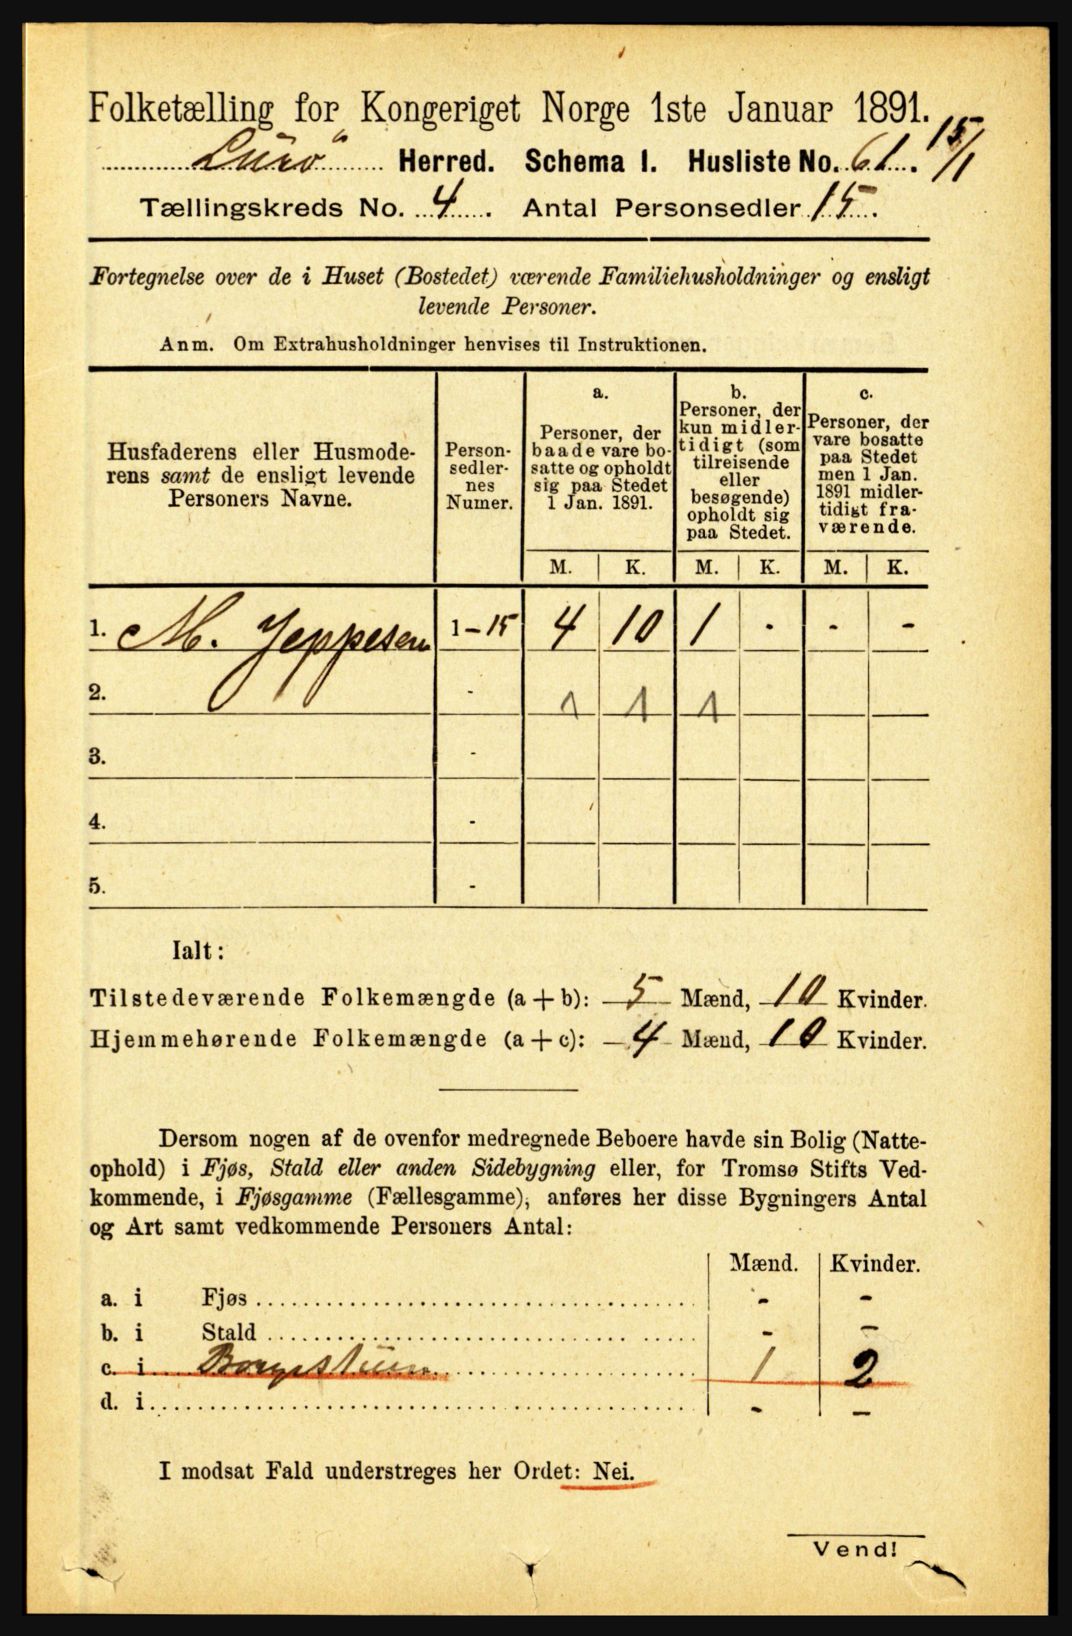 Folketælling for Kongeriget Norge 1ste Januar 1891.
Lurö Herred. Schema I. Husliste No. 61. 15/1
Tællingskreds No. 4. Antal Personsedler 15.
Fortegnelse over de i Huset (Bostedet) værende Familiehusholdninger og ensligt
levende Personer.
Anm. Om Extrahusholdninger henvises til Instruktionen.
Husfaderens eller Husmode-
rens samt de ensligt levende
Personers Navne.
Person-
sedler-
nes
Numer.
a.
Personer, der
baade vare bo-
satte og opholdt
sig paa Stedet
1 Jan. 1891.
b.
Personer, der
kun midler-
tidigt (som
tilreisende
eller
besøgende)
opholdt sig
paa Stedet.
c.
Personer, der
vare bosatte
paa Stedet
men 1 Jan.
1891 midler-
tidigt fra-
værende.
M. K. M. K. M. K.
1. M. Jeppesen 1-15 4 10 1 - - -
2. - 1 1 1
3. -
4. -
5. -
Ialt:
Tilstedeværende Folkemængde (a + b): 5 Mænd, 10 Kvinder.
Hjemmehørende Folkemængde (a + c): 4 Mænd, 10 Kvinder.
Dersom nogen af de ovenfor medregnede Beboere havde sin Bolig (Natte-
ophold) i Fjøs, Stald eller anden Sidebygning eller, for Tromsø Stifts Ved-
kommende, i Fjøsgamme (Fællesgamme), anføres her disse Bygningers Antal
og Art samt vedkommende Personers Antal:
Mænd. Kvinder.
a. i Fjøs - -
b. i Stald - -
c. i Borgestuen 1 2
d. i - -
I modsat Fald understreges her Ordet: Nei.
Vend!